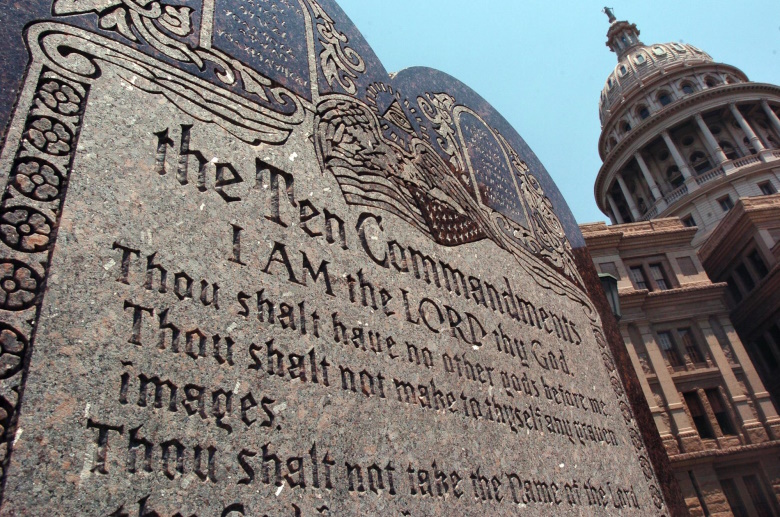 the Ten Commandments
I AM the LORD thy God.
Thou shalt have no other gods before me.
Thou shalt not make to thyself any graven
images.
Thou shalt not take the Name of the Lord
thy God